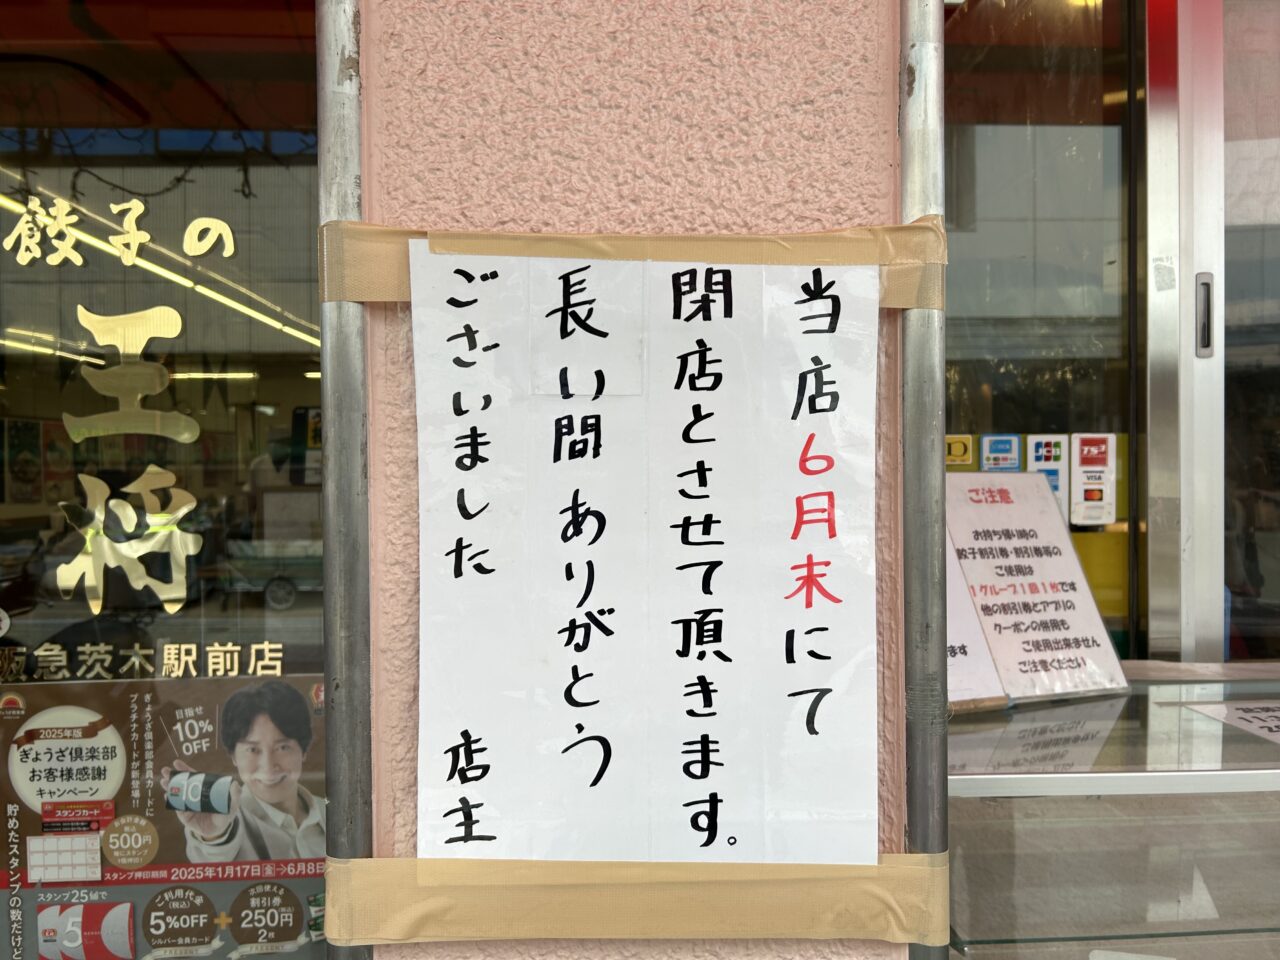 当店6月末にて
閉店とさせて頂きます。
長い間ありがとう
ございました
店主
餃子の
王将
阪急茨木駅前店
2025年版
ぎょうざ倶楽部
お客様感謝
キャンペーン
ぎょうざ倶楽部会員カードに
プラチナカードが新登場!!
目指せ
10%
OFF
スタンプカード
500円
スタンプ押印期間 2025年1月17日㊎→6月8日
貯めたスタンプの数だけど
スタンプ25個で
ご利用代金
(税込)
5%OFF
シルバー会員カード
PRESENT
+
次回使える
割引券
250円
2枚
PRESENT
JCB
TS3
VISA
ご注意
お持ち帰り時の
餃子割引券・割引券等の
ご使用は
1グループ1回1枚です
他の割引券とアプリの
クーポンの併用も
ご使用出来ません
ご注意ください
ます